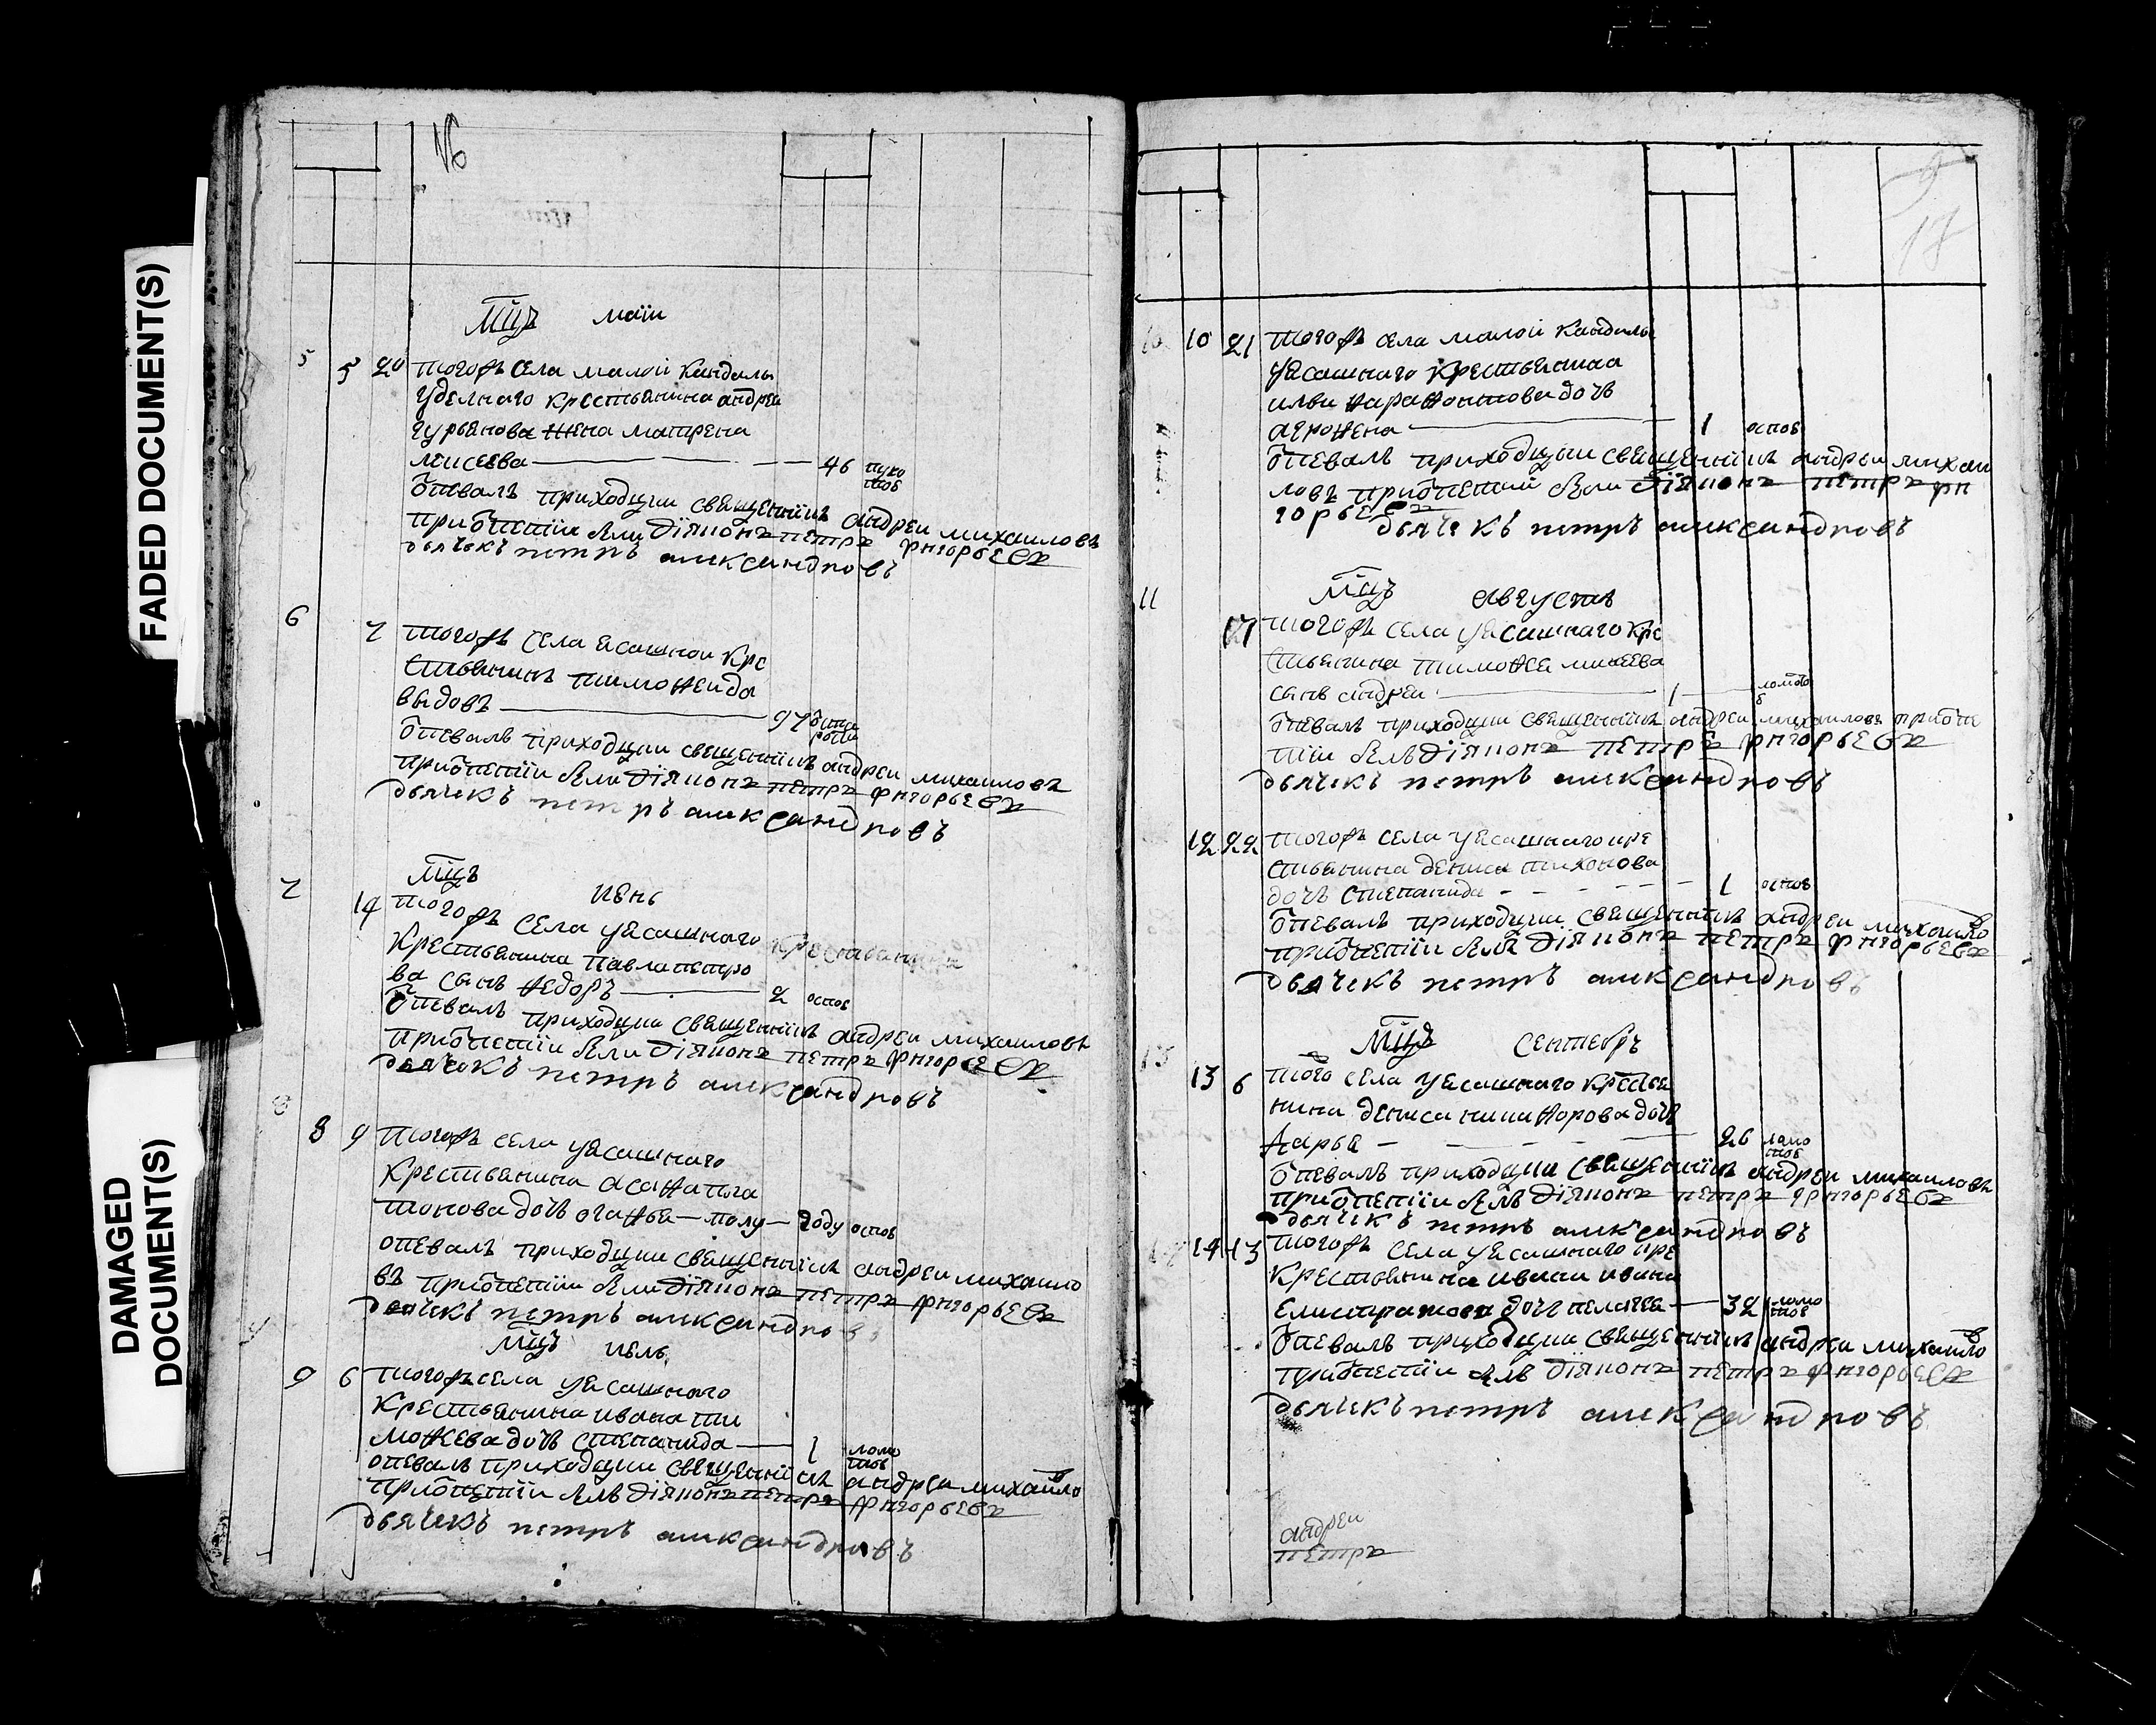 FADED DOCUMENT(S)
DAMAGED
DOCUMENT(S)
16
мцъ маіи
5 5 20 тогожъ села малои кандалы
уделнаго крестьянина андрея
гурьянова жена матрена
моисеева 46
отпевалъ приходцки священникъ андреи михаиловъ
при отпетіи были діяконъ петръ григорьевъ
дьячекъ петръ александровъ
6 7 тогожъ села ясашнои кре
стьянинъ тимофеи да
выдовъ 97
отпевалъ приходцки священникъ андреи михаиловъ
при отпетіи были діяконъ петръ григорьевъ
дьячекъ петръ александровъ
мцъ июнь
7 14 тогожъ села уясашнаго
крестьянина павла петро
ва сынъ федоръ 2 оспов
отпевалъ приходцки священникъ андреи михаиловъ
при отпетіи были діяконъ петръ григорьевъ
дьячекъ петръ александровъ
8 8 9 тогожъ села уясашнаго
крестьянина
дочь огафья полу году оспов
опевалъ приходцки священникъ андреи михаило
въ при отпетіи были діяконъ петръ григорьевъ
дьячекъ петръ александровъ
мцъ июль
9 6 тогожъ села уясашнаго
крестьянина ивана ти
мофева дочь степанида 1 ломо
тов
опевалъ приходцки священникъ андреи михаило
при отпетіи былъ діяконъ петръ григорьевъ
дьячекъ петръ александровъ
9
17
10 10 21 тогожъ села малои кандалы
уясашнаго крестьянина
ильи фарафонтова дочь
огрофена 1 оспов
отпевалъ приходцки священникъ андреи михаи
ловъ при отпетіи были діяконъ петръ гри
горьевъ
дьячекъ петръ александровъ
мцъ августъ
11 17 тогожъ села уясашнаго кре
стьянина тимофея михеева
сынъ андреи 1
отпевалъ приходцки священникъ андреи михаиловъ при отпе
тіи былъ діяконъ петръ григорьевъ
дьячекъ петръ александровъ
12 22 тогожъ села уясашнаго кре
стьянина дениса тихонова
дочь степанида 1 оспов
отпевалъ приходцки священникъ андреи михаило
при отпетіи былъ діяконъ петръ григорьевъ
дьячекъ петръ александровъ
мцъ сентебръ
13 13 6 того села уясашнаго крестья
нина дениса никифорова дочь
дарья 26 ломо
тов
отпевалъ приходцки священникъ андреи михаиловъ
при отпетіи былъ діяконъ петръ григорьевъ
дьячекъ петръ александровъ
14 13 тогожъ села уясашнаго кре
крестьянина ивана ивана
елистратова дочь пелагея 32 ломо
тов
отпевалъ приходцки священникъ андреи михаило
при отпетіи былъ діяконъ петръ григорьевъ
дьячекъ петръ александровъ
андреи
петръ